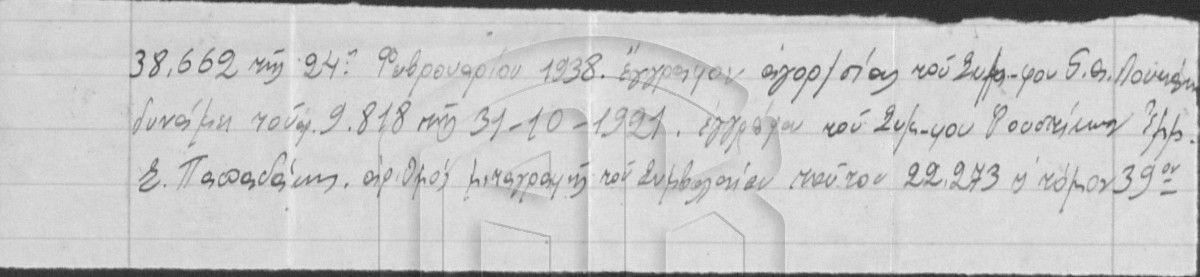 38.662 τῆς 24ης Φεβρουαρίου 1938. Ἔγγραφον ἀγορ/σίας τοῦ Συμ-φου
δυνάμει τοῦ 9.818 τῆς 31-10-1921. ἐγγράφου τοῦ Συμ-φου Ἐμμ.
Ε. Παπαδάκη. ἀριθμός μεταγραφῆς τοῦ Συμβολαίου τούτου 22.273 τόμον 39ον